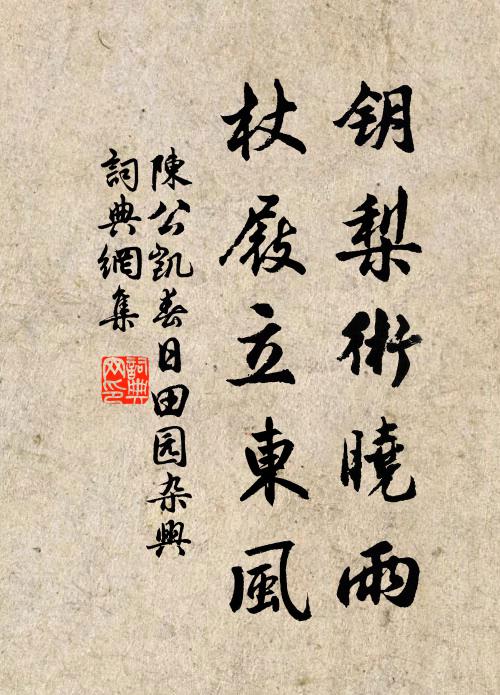 钥梨術曉雨
杖屐立東風
陳公凱春日田园杂興
詞典網集
詞典
网印